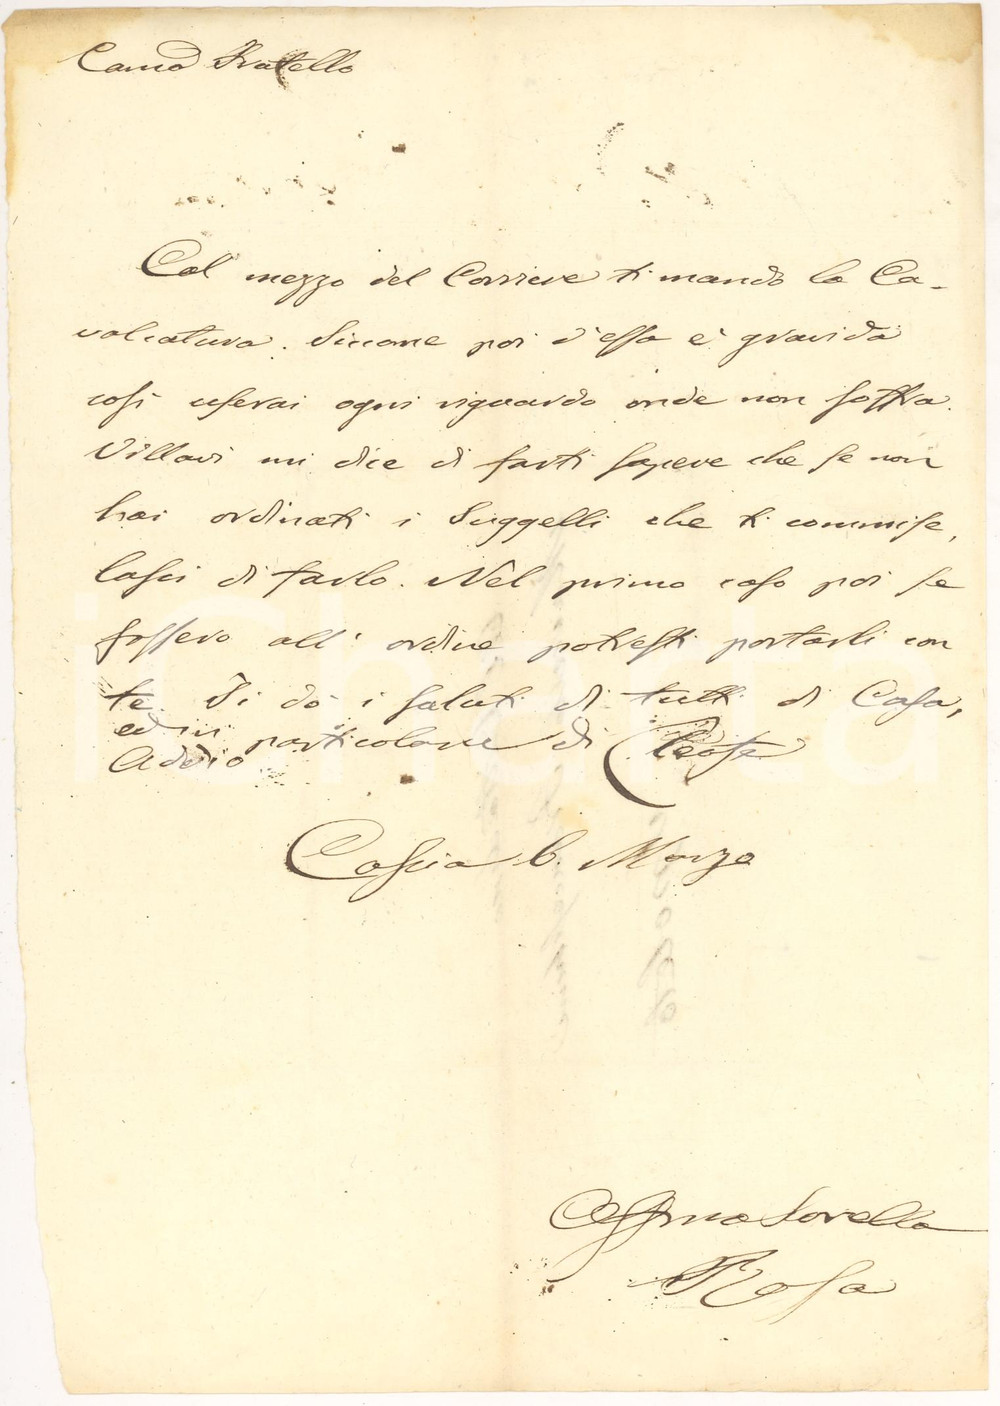 Caro Fratello
Col mezzo del Corriere ti mando la Ca-
valcatura. Siccome poi d'essa è gravida
così userai ogni riguardo onde non soffra.
Villari mi dice di farti sapere che se non
hai ordinati i Suggelli che ti commise,
lasci di farlo. Nel primo caso poi se
fossero all' ordine potresti portarli con
te. Ti dò i saluti di tutti di Casa,
ed in particolare di
Addio
Cascia 6. Marzo
Affma Sorella
Rosa